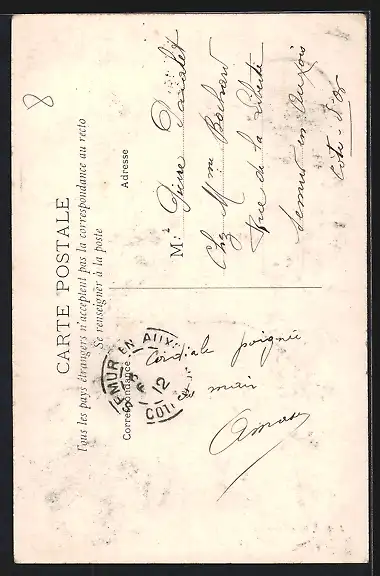 CARTE POSTALE
Tous les pays étrangers n'acceptent pas la correspondance au recto
Se renseigner à la poste
Correspondance
Adresse
8
SEMUR EN AUX
6
12
COT
Cordiale poignée
de main
M. Pierre
Chez Mme
Rue de la Liberté
Semur en Auxois
Côte-d'or